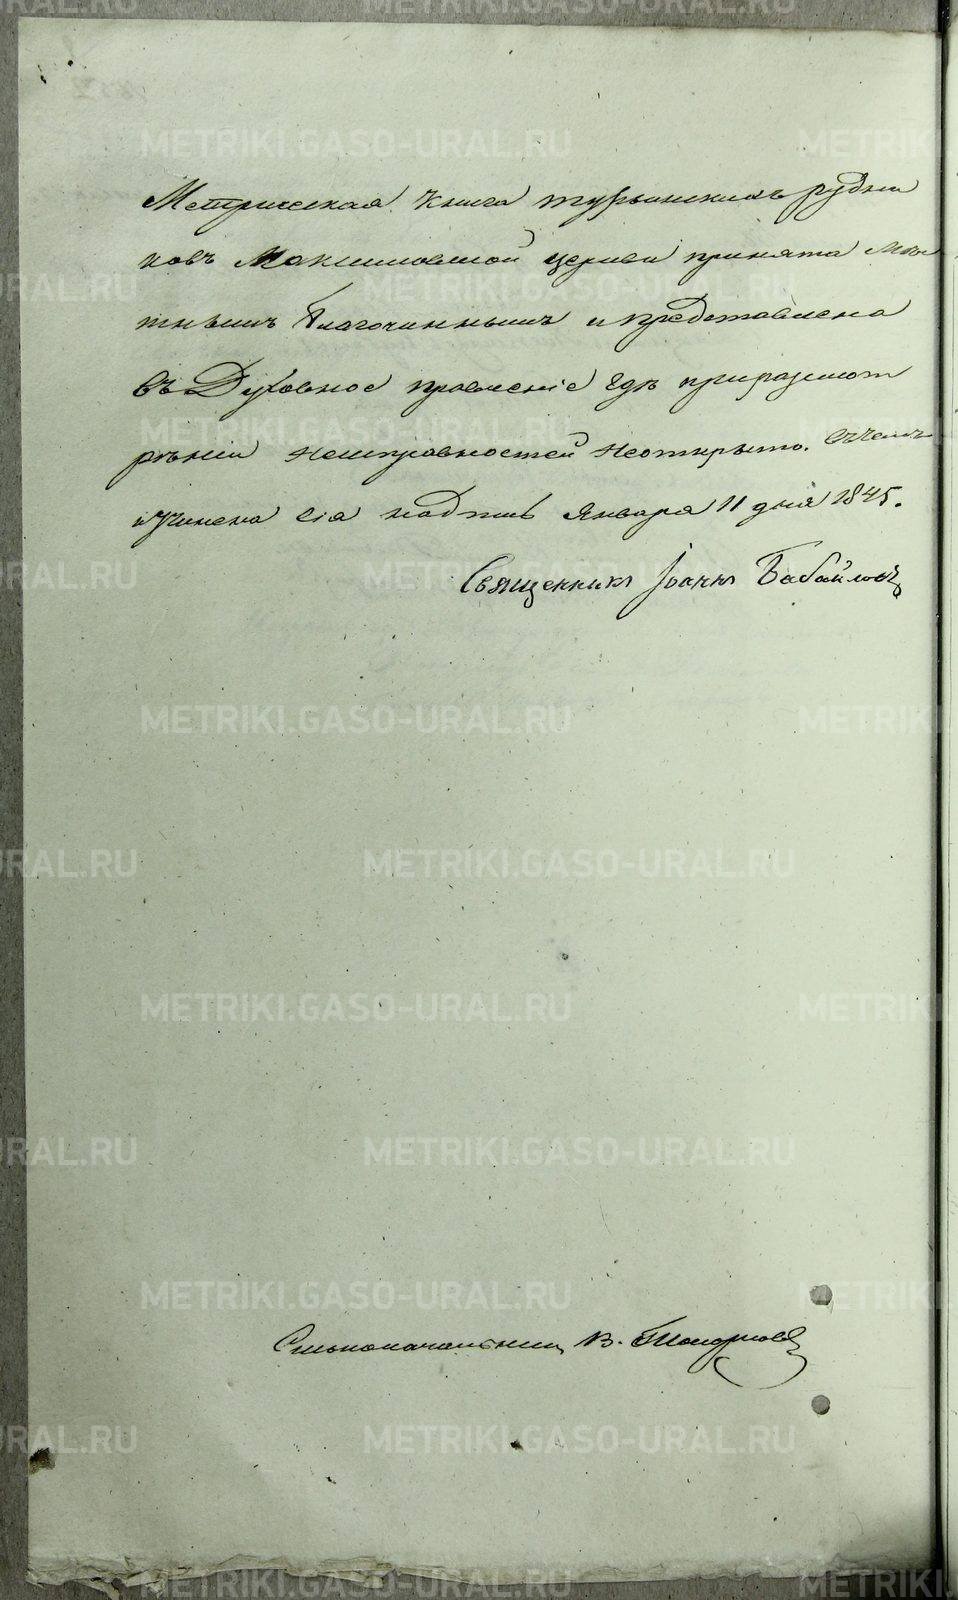 Метрическая книга турьинскихъ рудни
ковъ Максимовской церкви принята мѣс
тнымъ Благочиннымъ и представлена
въ Духовное правленіе гдѣ приразсмот
рѣніи неисправностей неоткрыто. Вчемъ
иучинена сія надпись Января 11 дня 1845.
Священникъ Іоаннъ Бабайловъ
Столоначальникъ В.
METRIKI.GASO-URAL.RU